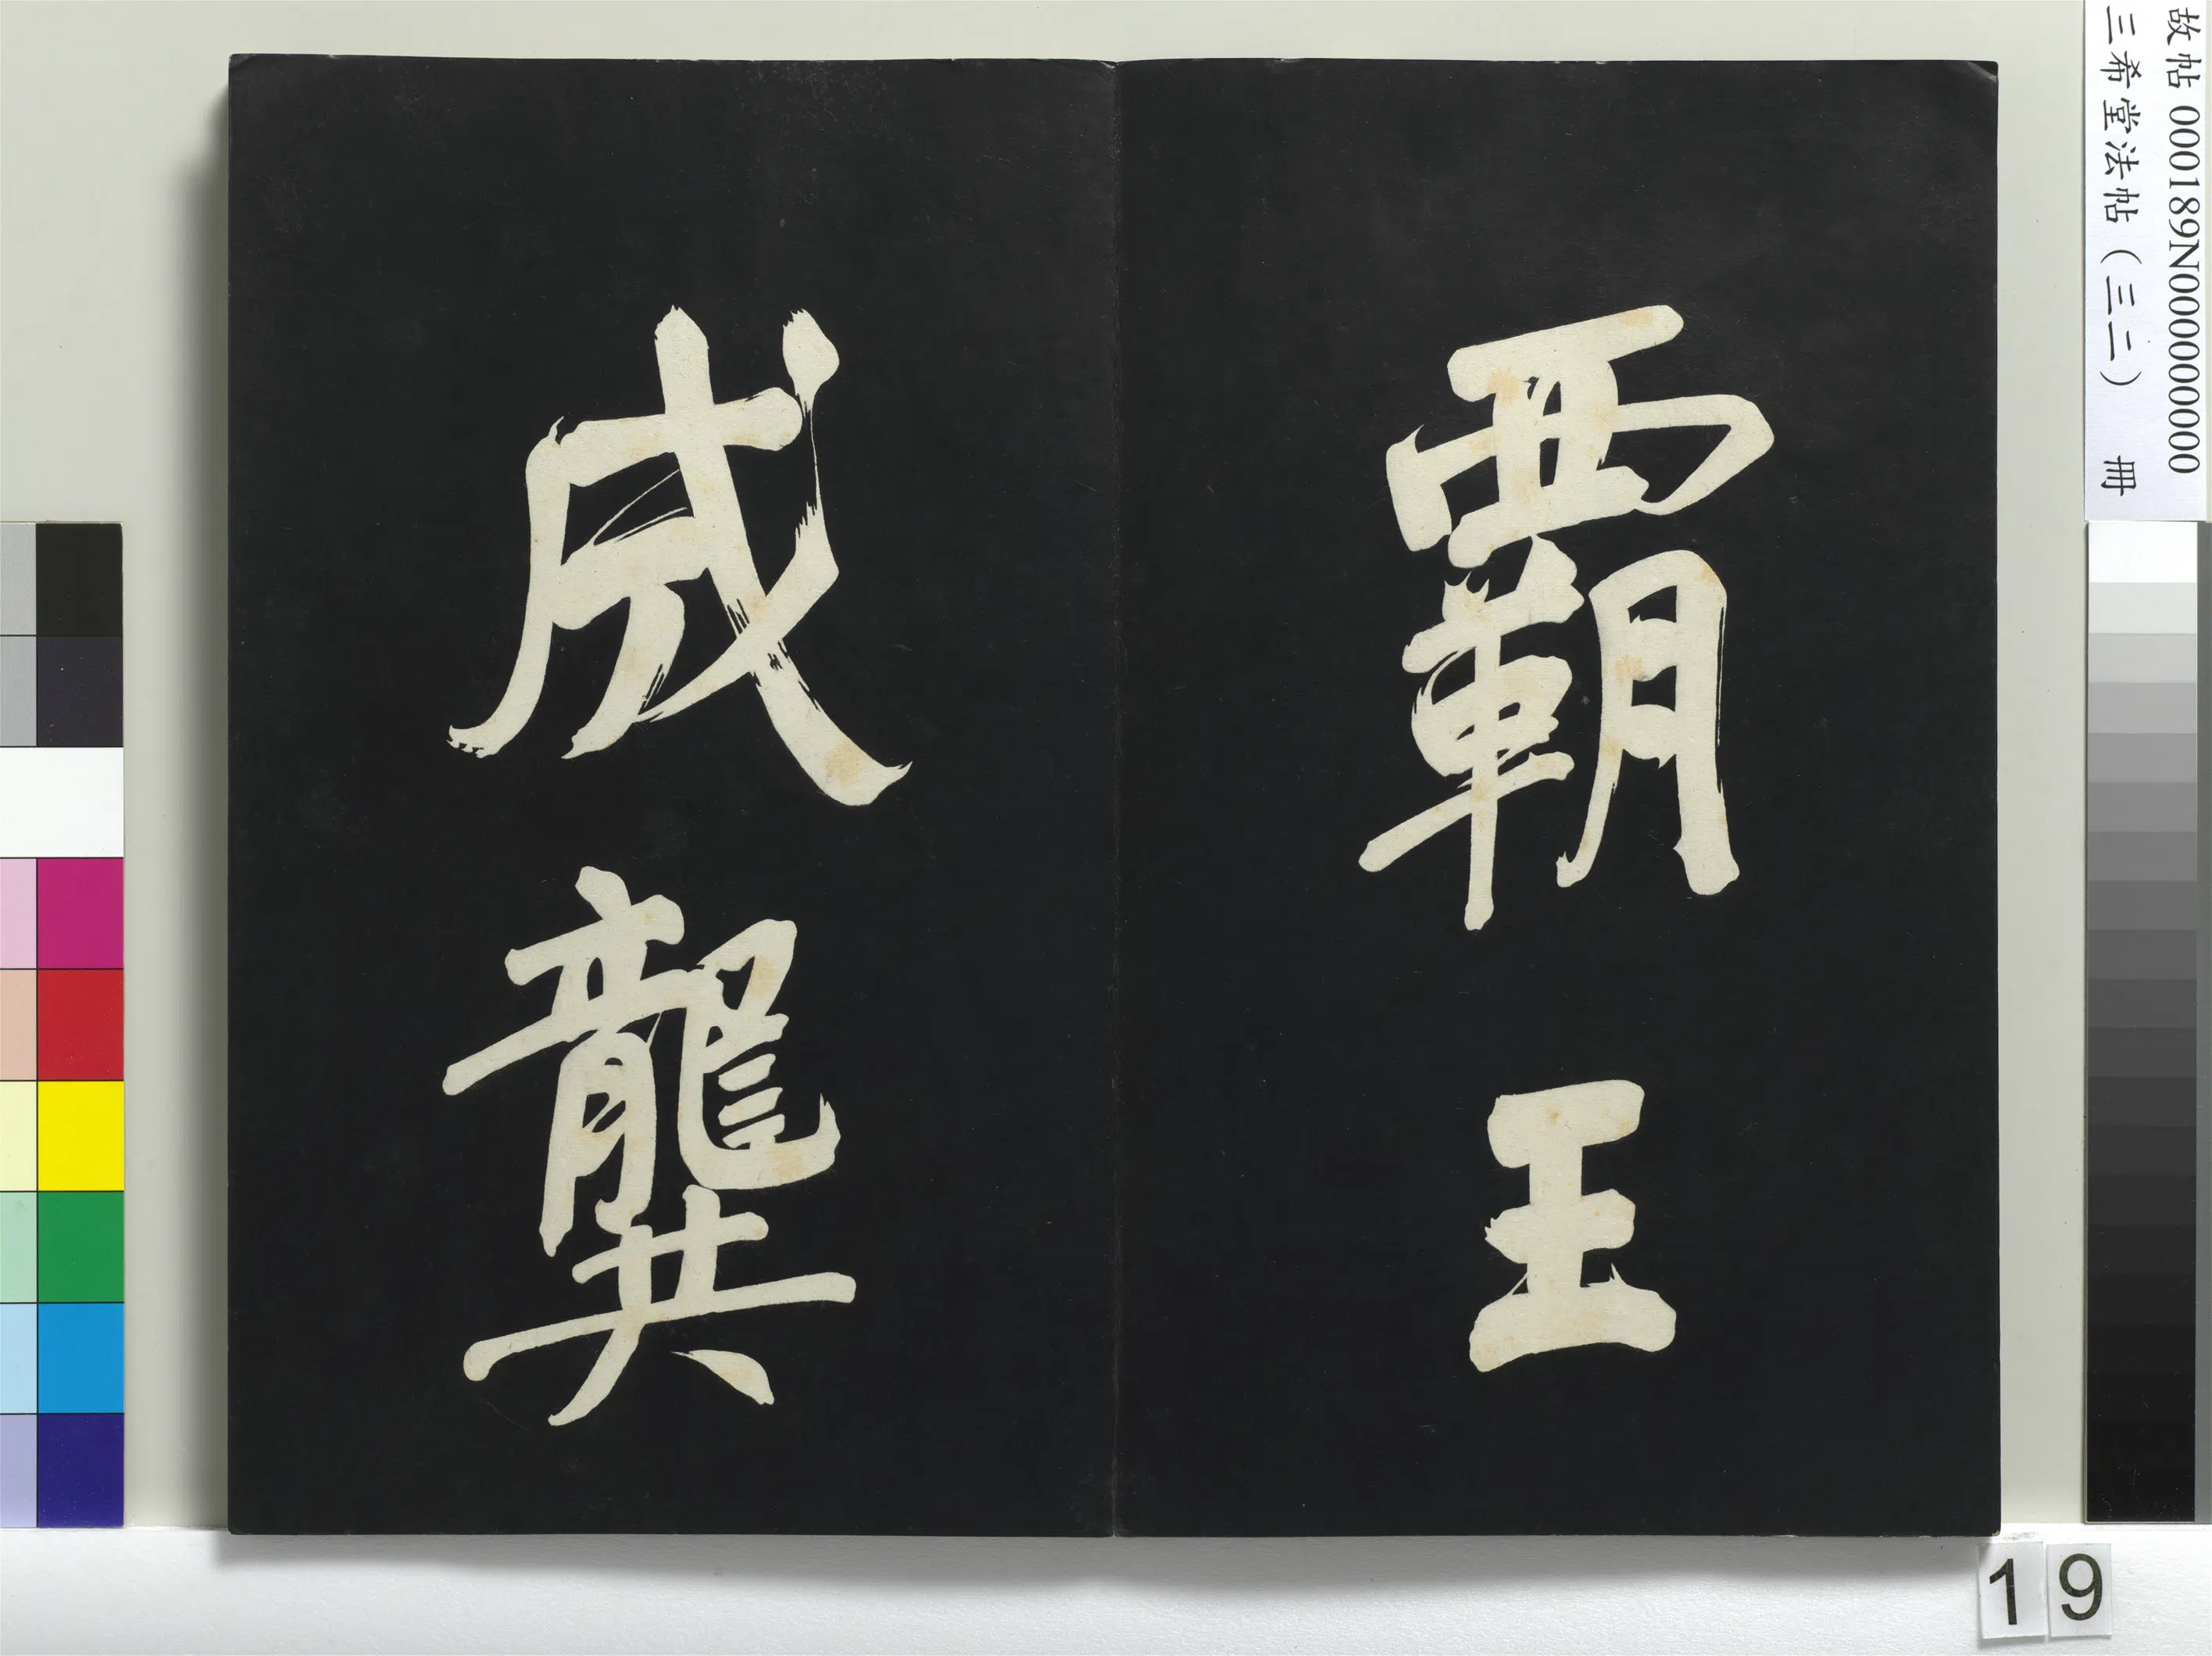 覇王
成龔
故帖 000189N000000000
三希堂法帖（三二） 冊
19